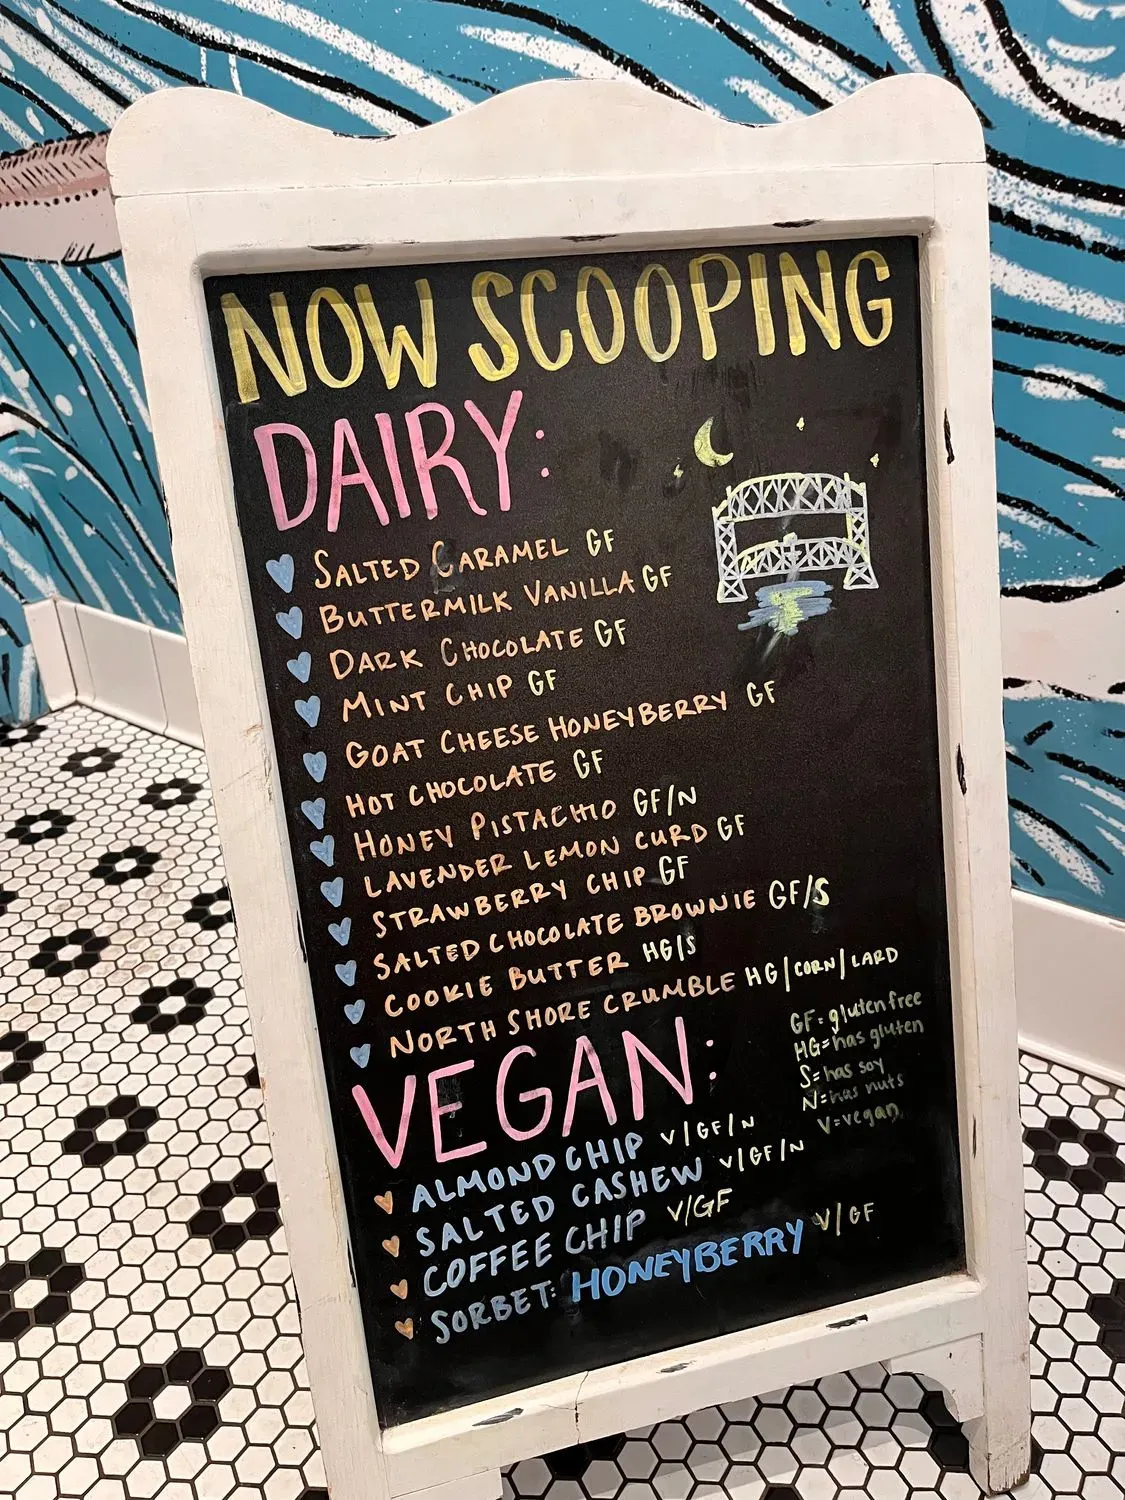 NOW SCOOPING
DAIRY:
SALTED CARAMEL GF
BUTTERMILK VANILLA GF
DARK CHOCOLATE GF
MINT CHIP GF
GOAT CHEESE HONEYBERRY GF
HOT CHOCOLATE GF
HONEY PISTACHIO GF/N
LAVENDER LEMON CURD GF
STRAWBERRY CHIP GF
SALTED CHOCOLATE BROWNIE GF/S
COOKIE BUTTER HG/S
NORTH SHORE CRUMBLE HG/CORN/LARD
GF=gluten free
HG=has gluten
S=has soy
N=has nuts
V=vegan
VEGAN:
ALMOND CHIP V/GF/N
SALTED CASHEW V/GF/N
COFFEE CHIP V/GF
SORBET: HONEYBERRY V/GF